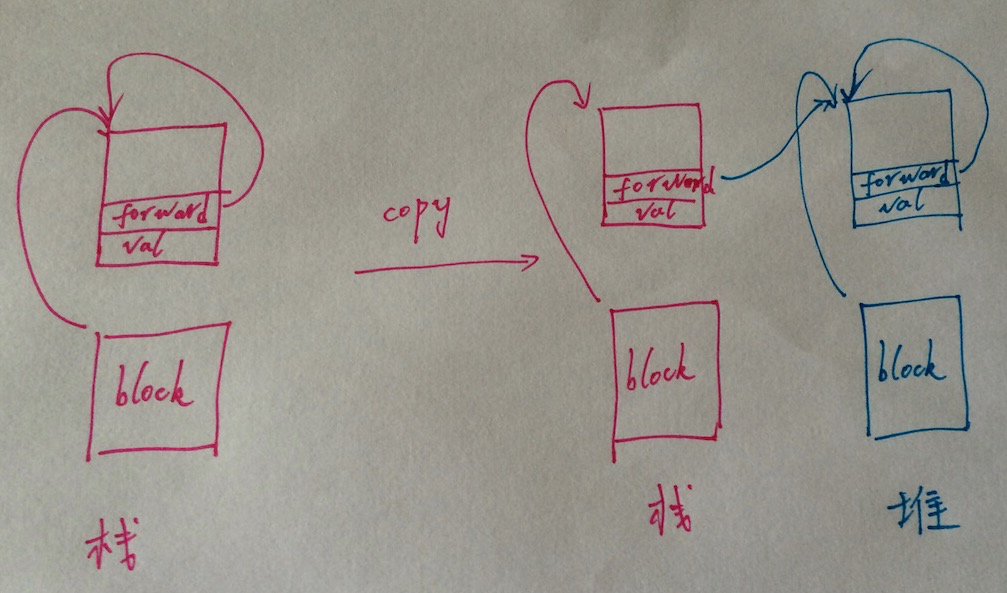 forward
val
block
栈
copy
forward
val
block
栈
forward
val
block
堆